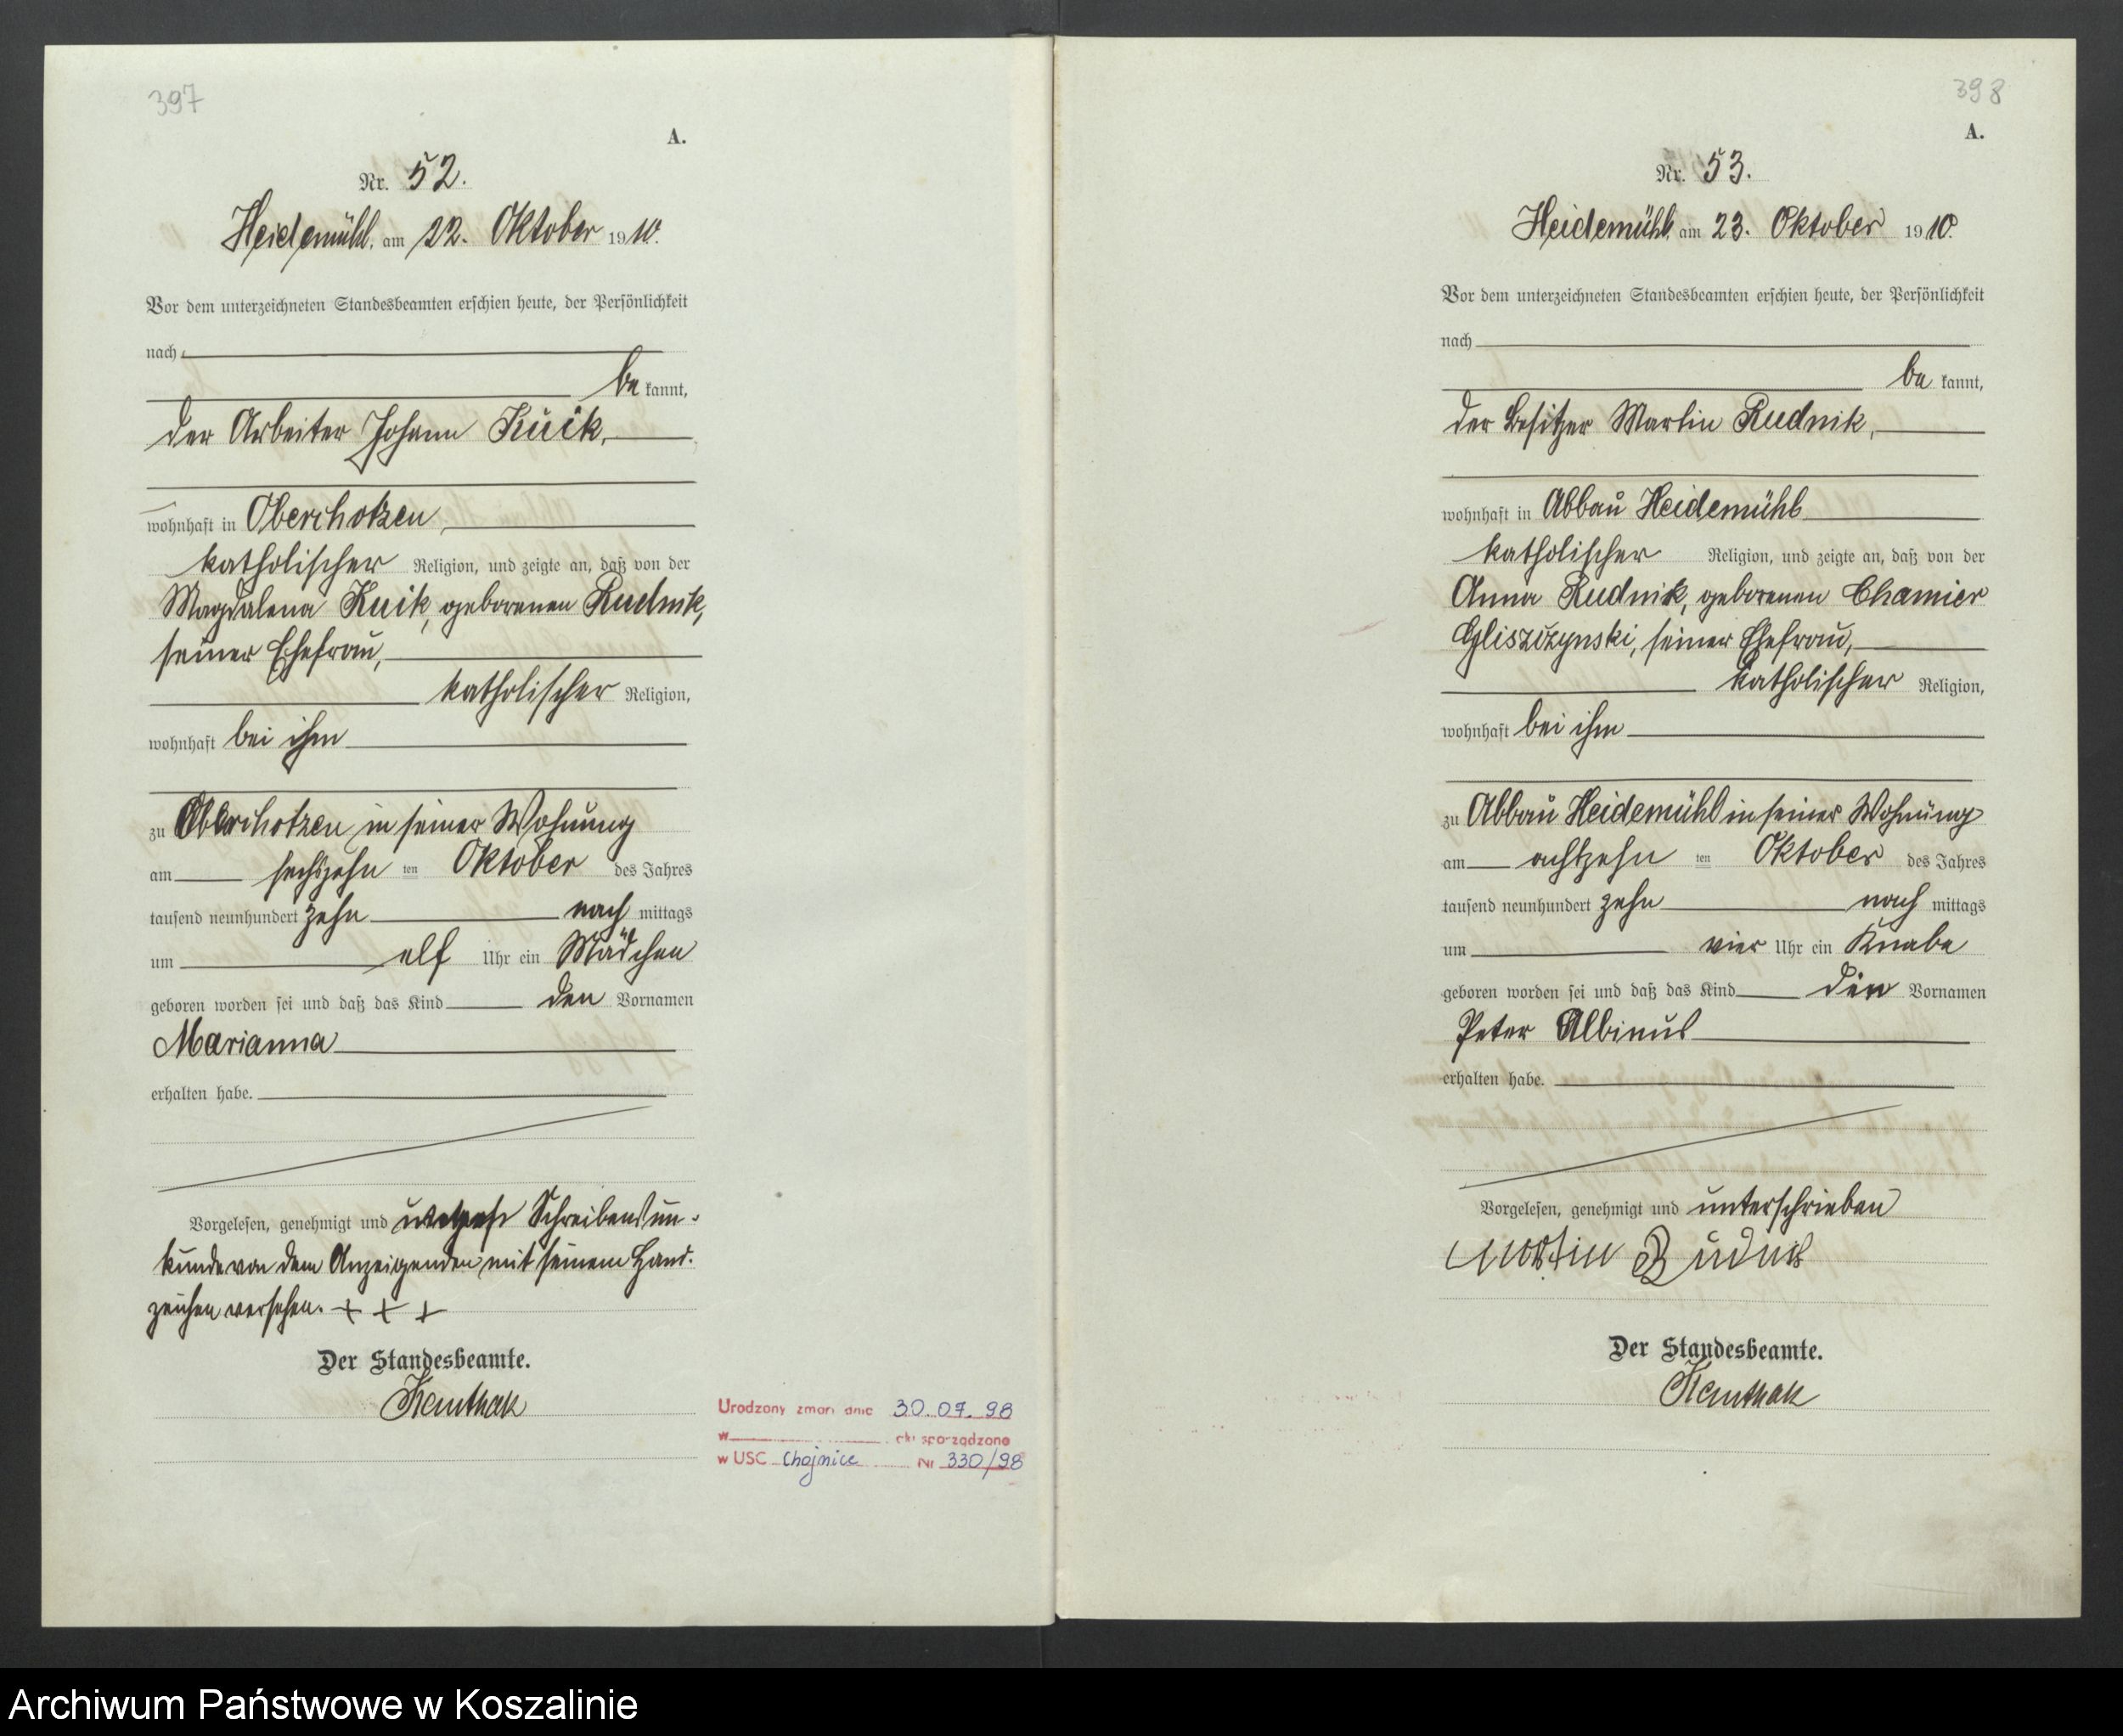 397
A.
Nr. 52.
Heidemühl. am 22. Oktober 1910.
Vor dem unterzeichneten Standesbeamten erschien heute, der Persönlichkeit
nach
be kannt,
der Arbeiter Johann Kuik,
wohnhaft in Oberchotzen
katholischer Religion, und zeigte an, daß von der
Magdalena Kuik, geborenen Rudnik,
seiner Ehefrau,
katholischer Religion,
wohnhaft bei ihm
zu Oberchotzen in seiner Wohnung
am sechszehn ten Oktober des Jahres
tausend neunhundert zehn nach mittags
um elf Uhr ein Mädchen
geboren worden sei und daß das Kind den Vornamen
Marianna
erhalten habe.
Vorgelesen, genehmigt und Schreibensun-
kunde von dem Anzeigenden mit seinem Hand-
zeichen versehen. + + +
Der Standesbeamte.
Kemthak
Urodzony zmarł dnia 30.07.98
w akt sporządzono
w USC Chojnice Nr 330/98
398
A.
Nr. 53.
Heidemühl. am 23. Oktober 1910.
Vor dem unterzeichneten Standesbeamten erschien heute, der Persönlichkeit
nach
be kannt,
der Besitzer Martin Rudnik,
wohnhaft in Abbau Heidemühl
katholischer Religion, und zeigte an, daß von der
Anna Rudnik, geborenen Chamier
Gliszczynski, seiner Ehefrau,
katholischer Religion,
wohnhaft bei ihm
zu Abbau Heidemühl in seiner Wohnung
am achtzehn ten Oktober des Jahres
tausend neunhundert zehn nach mittags
um vier Uhr ein Knabe
geboren worden sei und daß das Kind den Vornamen
Peter Albinus
erhalten habe.
Vorgelesen, genehmigt und unterschrieben
Martin Rudnik
Der Standesbeamte.
Kemthak
Archiwum Państwowe w Koszalinie